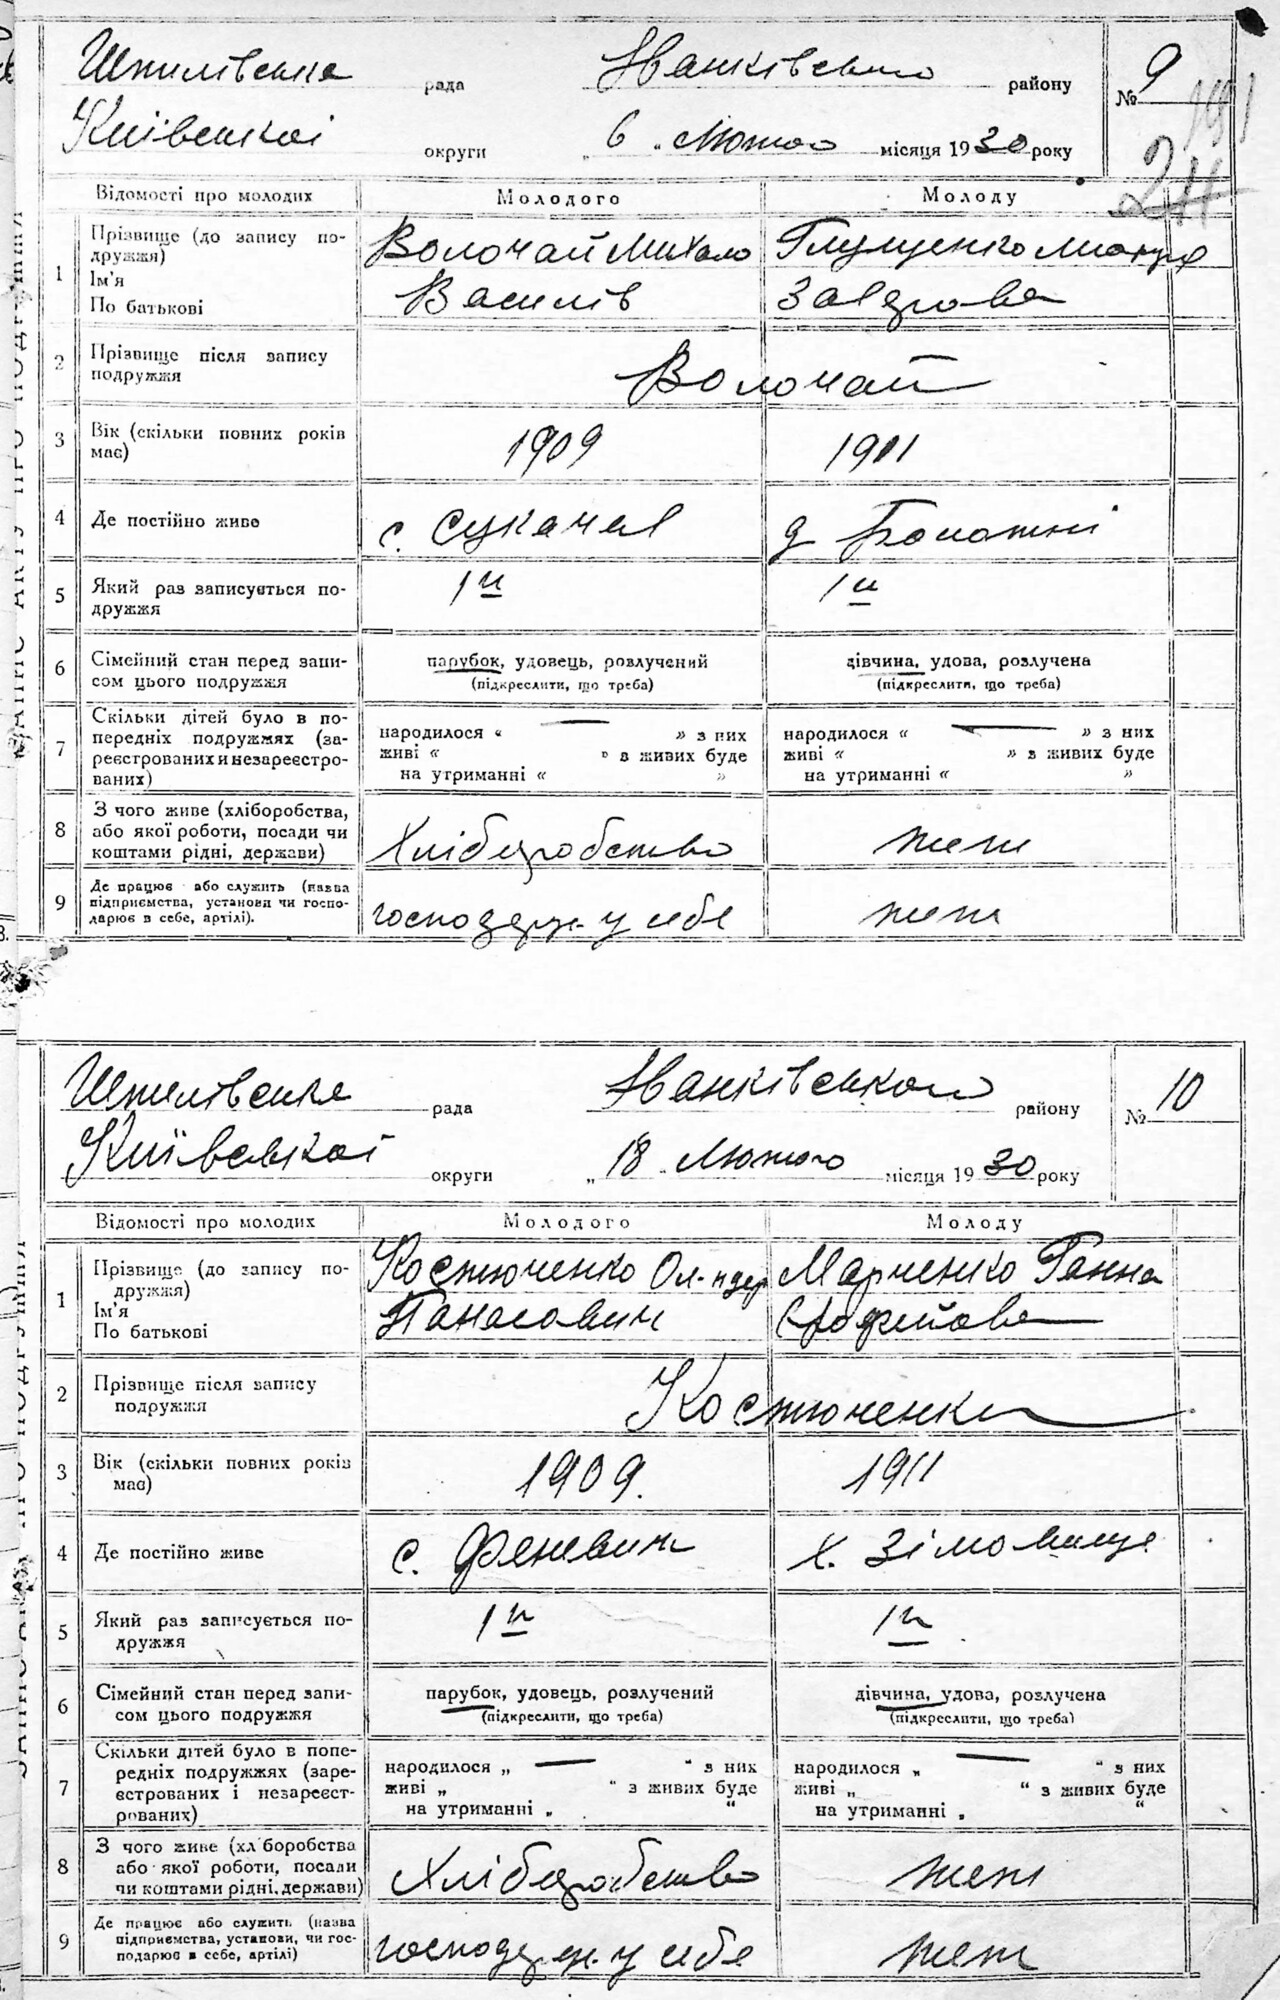 Шпилівська рада Іванківського району № 9
Київської округи „ 6 “ Лютого місяця 1930 року
191
24
Відомості про молодих Молодого Молоду
1 Прізвище (до запису подружжя) Волочай Михало Глущенко
Ім'я
По батькові Василів
2 Прізвище після запису подружжя Волочай
3 Вік (скільки повних років має) 1909 1911
4 Де постійно живе с. Сукачів
5 Який раз записується подружжя 1й 1й
6 Сімейний стан перед записом цього подружжя парубок, удовець, розлучений дівчина, удова, розлучена
(підкреслити, що треба) (підкреслити, що треба)
7 Скільки дітей було в попередніх подружжях (зареєстрованих и незареєстрованих) народилося « — » з них народилося « — » з них
живі « » в живих буде живі « » в живих буде
на утриманні « » на утриманні « »
8 З чого живе (хліборобства, або якої роботи, посади чи коштами рідні, держави) Хліборобство теж
9 Де працює або служить (назва підприємства, установи чи господарює в себе, артілі). господарює у себе теж
Шпилівська рада Іванківського району № 10
Київської округи „ 18 Лютого місяця 1930 року
Відомості про молодих Молодого Молоду
1 Прізвище (до запису подружжя) Костюченко Ол-ндр Марченко Ганна
Ім'я
По батькові Панасович
2 Прізвище після запису подружжя Костюченки
3 Вік (скільки повних років має) 1909. 1911
4 Де постійно живе с. Феневичі х. Зімовище
5 Який раз записується подружжя 1й 1й
6 Сімейний стан перед записом цього подружжя парубок, удовець, розлучений дівчина, удова, розлучена
(підкреслити, що треба) (підкреслити, що треба)
7 Скільки дітей було в попередніх подружжях (зареєстрованих і незареєстрованих) народилося „ — “ з них народилося „ — “ з них
живі „ “ з живих буде живі „ “ з живих буде
на утриманні „ “ на утриманні „ “
8 З чого живе (хліборобства або якої роботи, посади чи коштами рідні, держави) Хліборобство теж
9 Де працює або служить (назва підприємства, установи, чи господарює в себе, артілі) господарює у себе теж